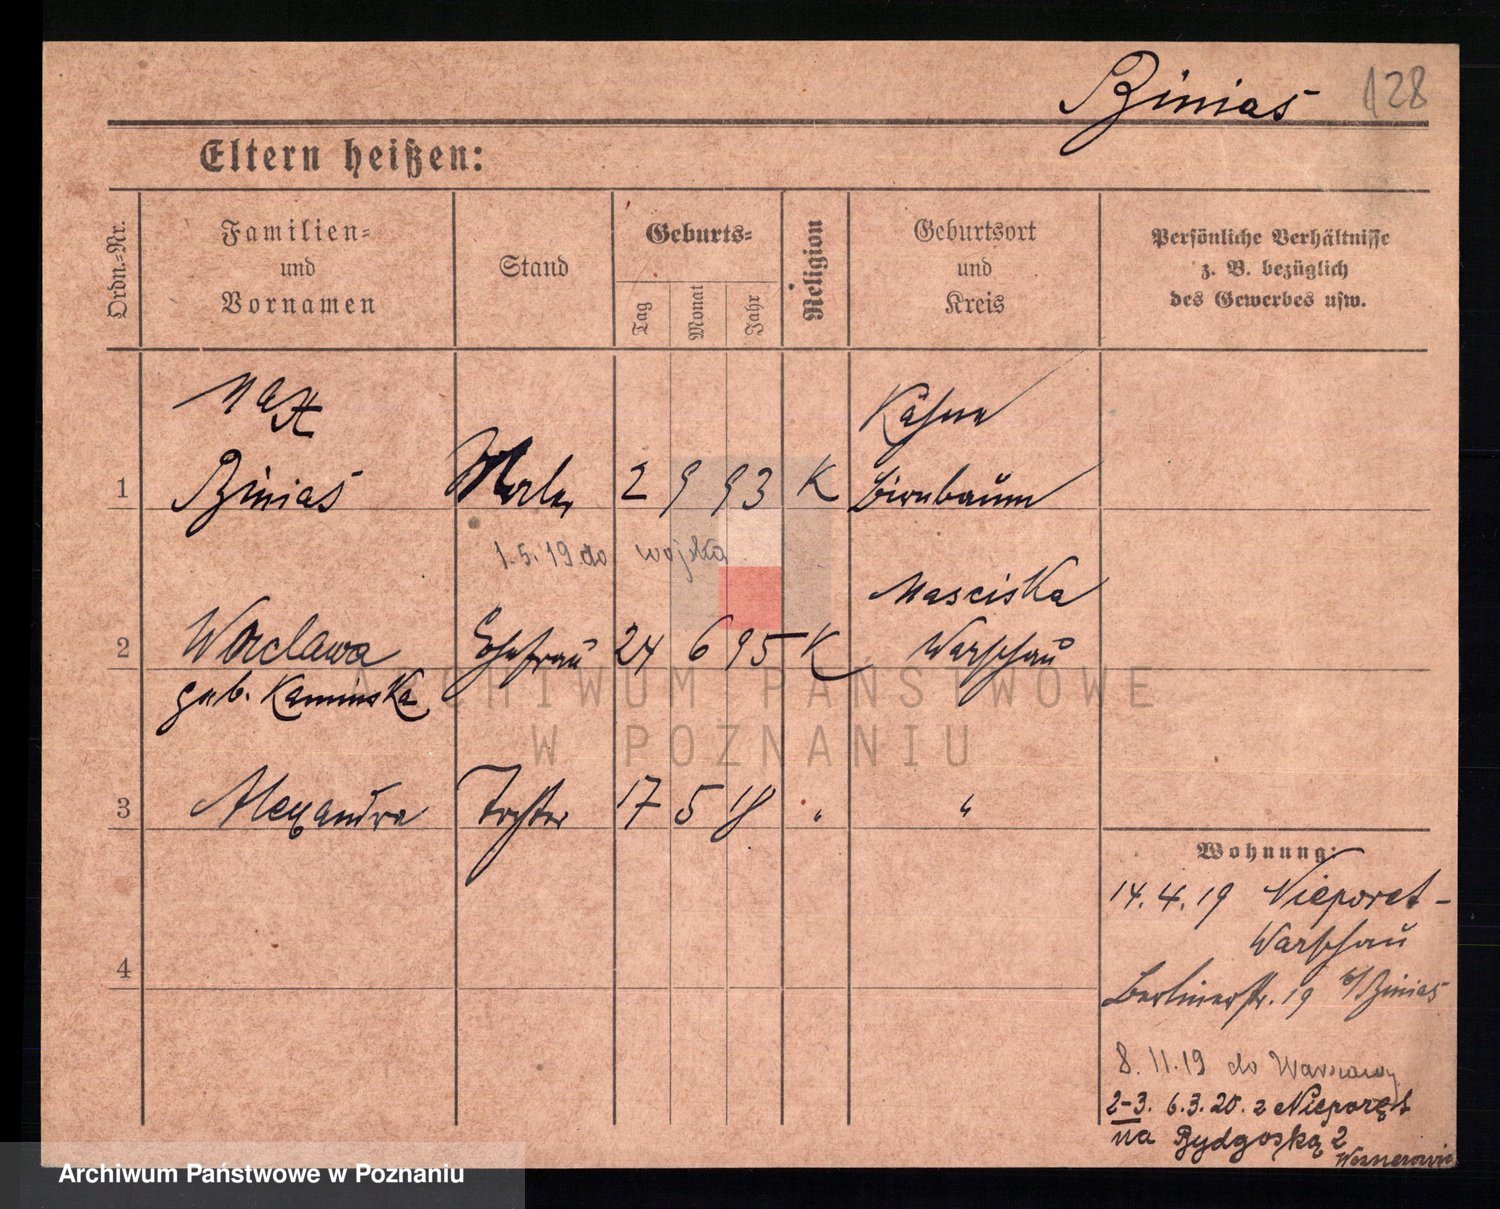 Binias 128
Eltern heißen:
Ordn.-Nr.
Familien-
und
Vornamen
Stand
Geburts-
Tag
Monat
Jahr
Religion
Geburtsort
und
Kreis
Persönliche Verhältnisse
z. B. bezüglich
des Gewerbes usw.
Max Kähme
1 Binias 2 9 93 K Birnbaum
1.5.19 do wojska
Masciska
2 Worclawa Ehefrau 24 6 95 K Warschau
geb. Kaminska
3 Alexandra Tochter 17 5 18 " "
4
Wohnung:
14.4.19 Nieporet-
Warschau
Berlinerstr. 19 b/Binias
8.11.19 do Warszawy
2-3. 6.3.20. z Nieporęt
na Bydgoską 2
ARCHIWUM PAŃSTWOWE
W POZNANIU
Archiwum Państwowe w Poznaniu